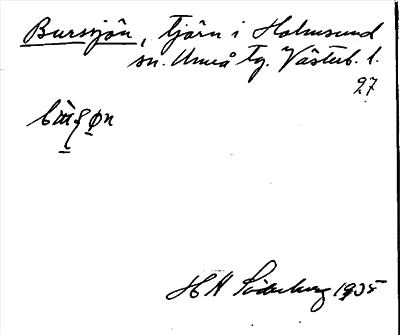 Bursjön, tjärn i Holmsund
sn. Umeå tg. Västerb. l.
27
H H Söderberg 1935